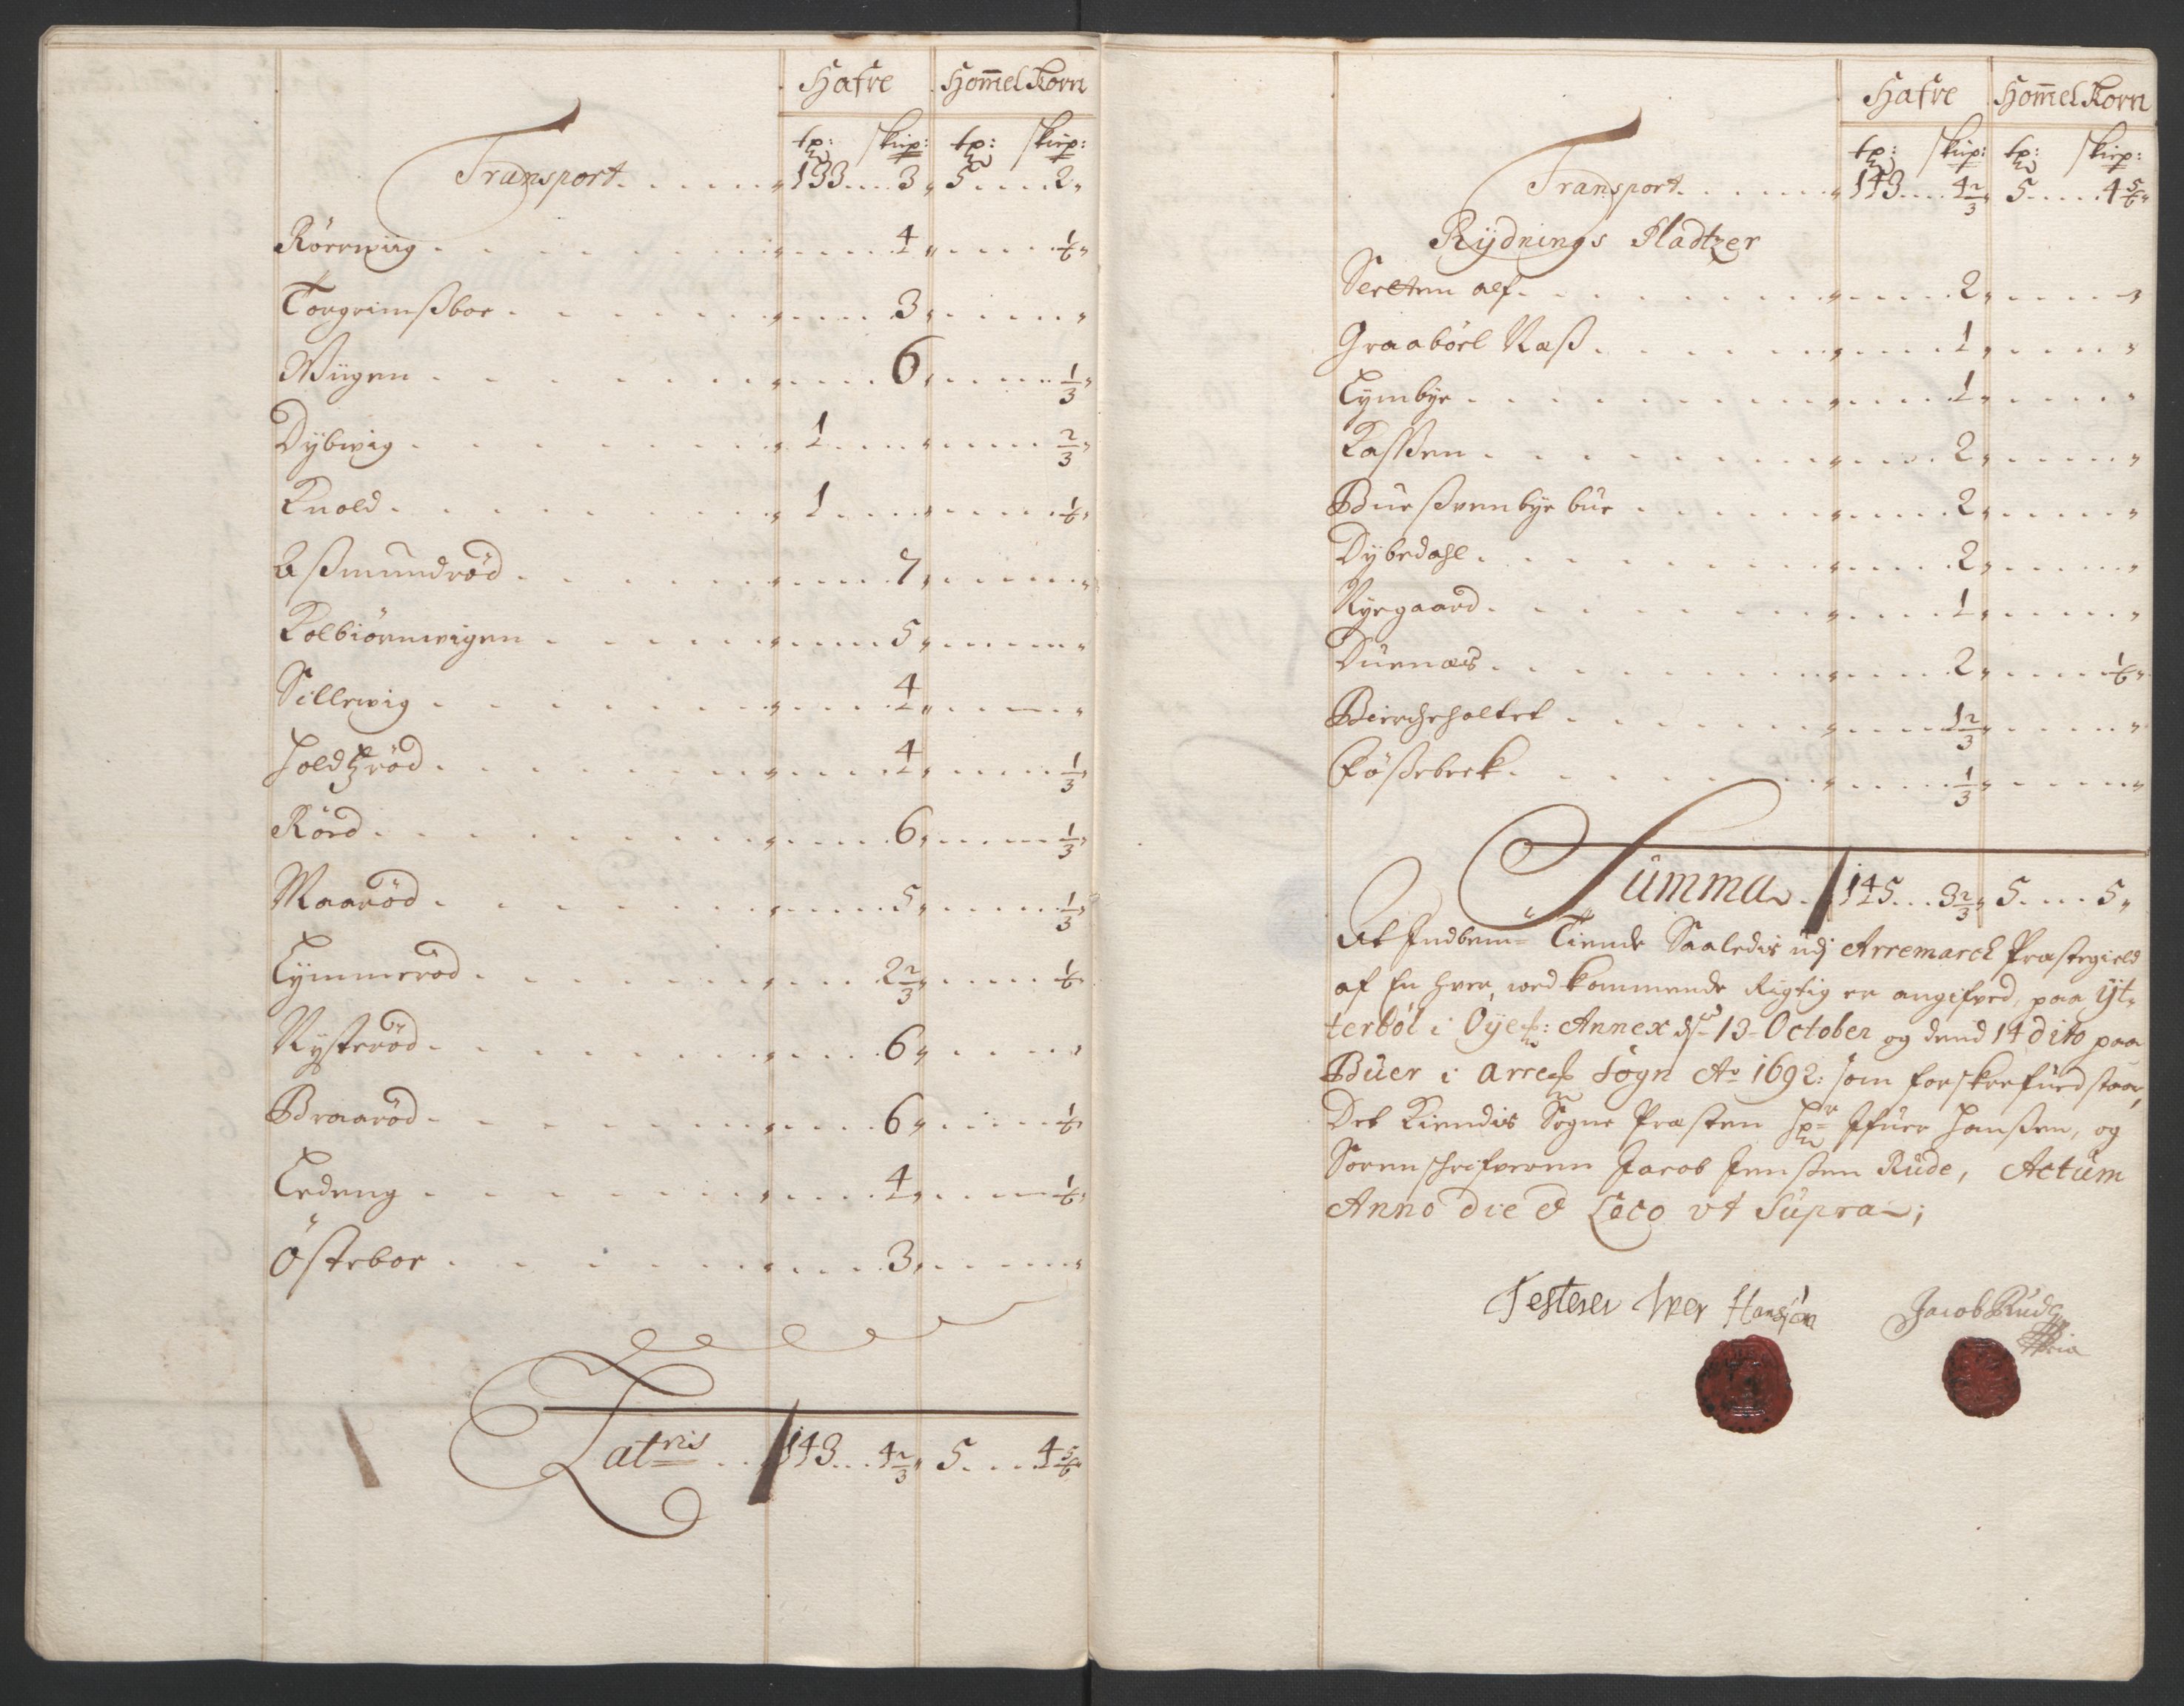 Hafre Hom̄el Korn
tp: skiep: tp: skiep:
Transport . . . . . 133 . . . 3 „ 5 . . . . 2 „
Rörrwiig . . . . 4 „ . . . . 1/6 „
Torgrimßboe . . . . 3 „ . . . . „
Wiigen . . . . 6 „ . . . . 1/3 „
Dÿbwig . . . . 1 . . . . „ . . . . 2/3 „
Knold . . . . 1 . . . . „ . . . . 1/6 „
Aßmundröd . . . . 7 „ . . . . „
Kolbiörnwigen . . . . 5 „ . . . . „
Sillewig . . . . 4 „ . . . . „
Holdtzröd . . . . 4 „ . . . . 1/3 „
Rörd . . . . 6 „ . . . . 1/3 „
Maaröd . . . . 5 „ . . . . 1/3 „
Tÿmmeröd . . . . 2 2/3 „ . . . . 1/6 „
Nÿsteröd . . . . 6 „ . . . . „
Braaröd . . . . 6 „ . . . . 1/6 „
Ledeng . . . . 4 „ . . . . 1/6 „
Östeboe . . . . 3 „ . . . . „
Latris . . 143 . . . 4 2/3 „ 5 . . . 4 5/6 „
Hafre Hom̄el Korn
tp: skiep: tp: skiep:
Transport . . . . . 143 . . . 4 2/3 „ 5 . . . . 4 5/6 „
Rÿdnings Pladtzer
Sertten alf . . . . 2 „ . . . . „
Graaböel Næß . . . . 1 „ . . . . „
Tÿmbÿe . . . . 1 „ . . . . „
Kassßen . . . . 2 „ . . . . „
Bueßvenbÿe bue . . . . 2 „ . . . . „
Dÿbedahl . . . . 2 „ . . . . „
Nÿegaard . . . . 1 „ . . . . „
Duenæs . . . . 2 „ . . . . 1/6 „
Bierckeholtet . . . . 1 2/3 „ . . . . „
Fößebeck . . . . 1/3 „ . . . . „
Summa . 145 . . . 3 2/3 „ 5 . . . . 5 „
At Indbem= Tiende Saaledis udj Arremarck Præstegield
af En hver vedkommende Rigtig er angifved, paa Yt-
terböl i Öÿe: Annex d 13 October og dend 14 dito paa
Buer i Arre Sogn Ao 1692: som forskrefued staar,
Det Kiendis Sogne Præsten Hr Ifuer Hanßen, og
Sorenschrifveren Jacob Jenßen Rude, Actum
Anno die & Loco vt Supra;
Testerer Iver Hansøn Jacob Rude